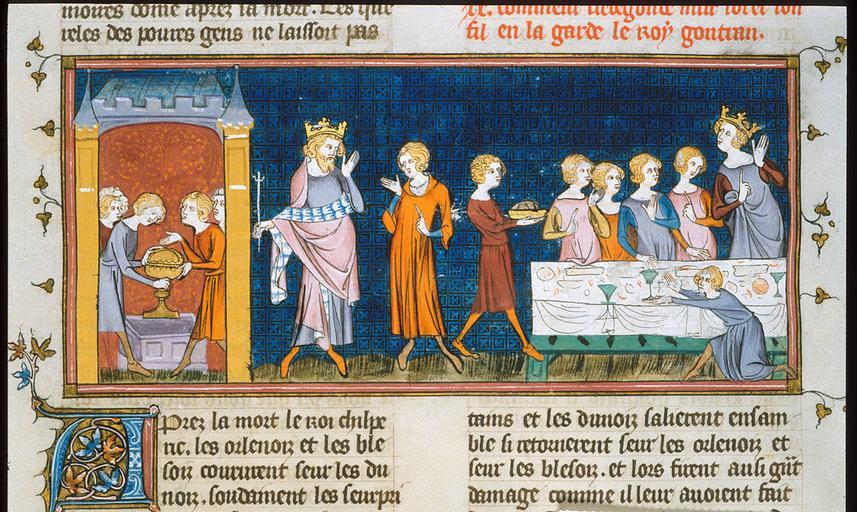 moures dome apres la mort. Les que
reles des poures gens ne laissoit pas
fil en la garde le roy gontran.
Apres la mort le roi chilpe
ric. les orlenoiz et les ble
soiz coururent seur les du
noiz. soudament les seurpri
tains et les dunoiz salierent ensam
ble si retornerent seur les orlenoiz et
seur les blesoiz. et lors firent ausi grāt
damage comme il leur auoient fait